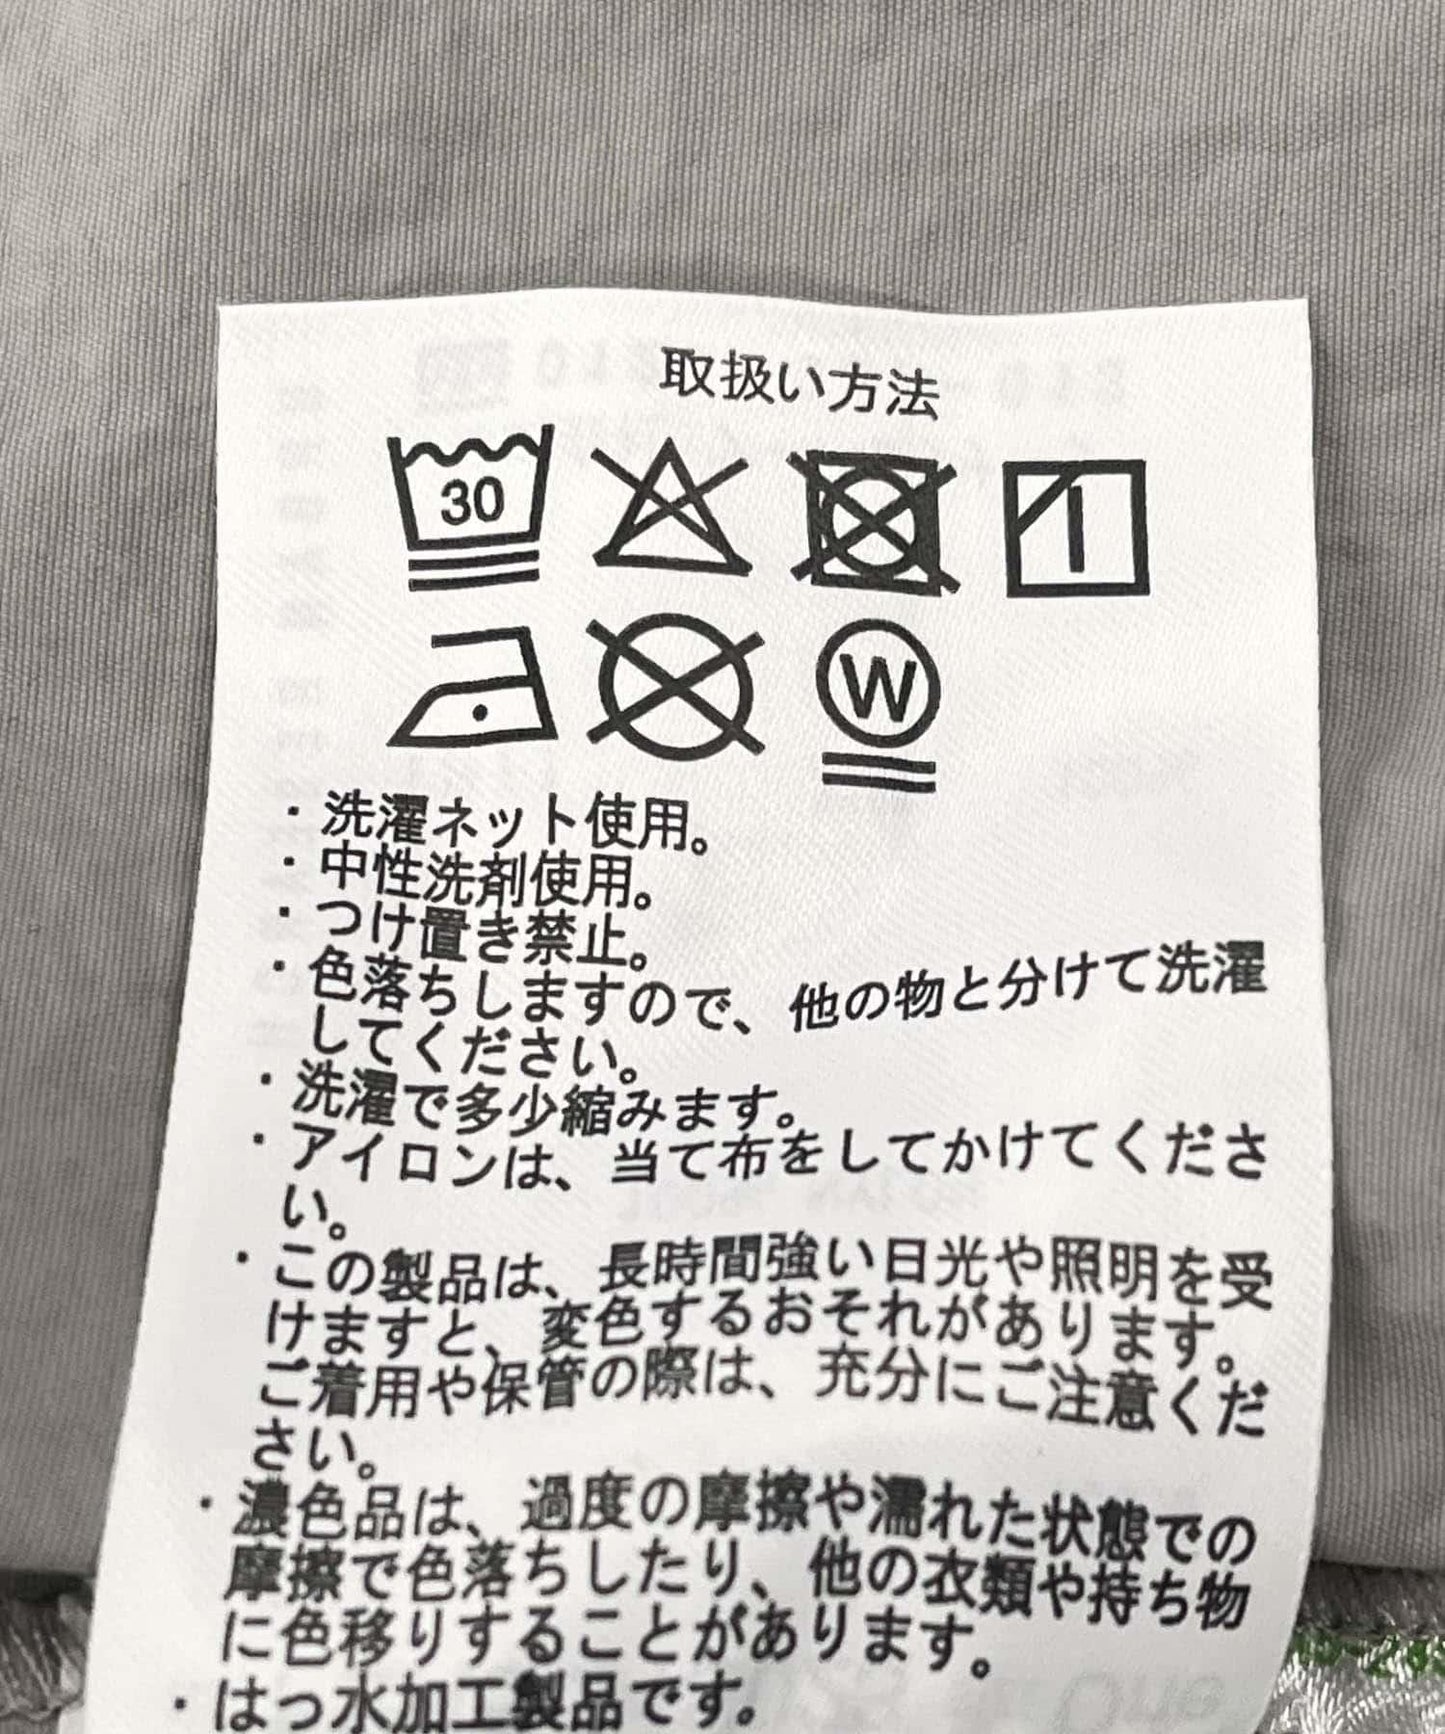 取扱い方法
30
W
・洗濯ネット使用。
・中性洗剤使用。
・つけ置き禁止。
・色落ちしますので、他の物と分けて洗濯
してください。
・洗濯で多少縮みます。
・アイロンは、当て布をしてかけてくださ
い。
・この製品は、長時間強い日光や照明を受
けますと、変色するおそれがあります。
ご着用や保管の際は、充分にご注意くだ
さい。
・濃色品は、過度の摩擦や濡れた状態での
摩擦で色落ちしたり、他の衣類や持ち物
に色移りすることがあります。
・はっ水加工製品です。